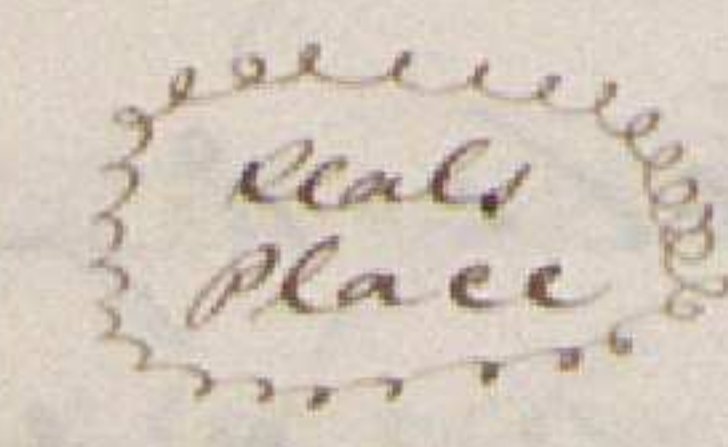 Seals
Place